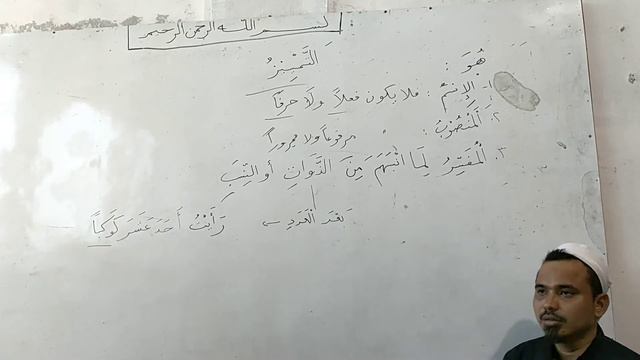 بسم الله الرحمن الرحيم
التَّمْيِيزُ
هُوَ :
١- الإِسْمُ : فلا يكون فعلاً ولا حرفًا
٢- اَلْمَنْصُوْبُ : مرفوعاً ولا مجروراً
٣- اَلْمُفَسِّرُ لِمَا انْبَهَمَ مِنَ الذَّوَاتِ أو النِّسَبِ
بَعْدَ الْعَدَدِ ــ رَأَيْتُ أَحَدَ عَشَرَ كَوْكَباً